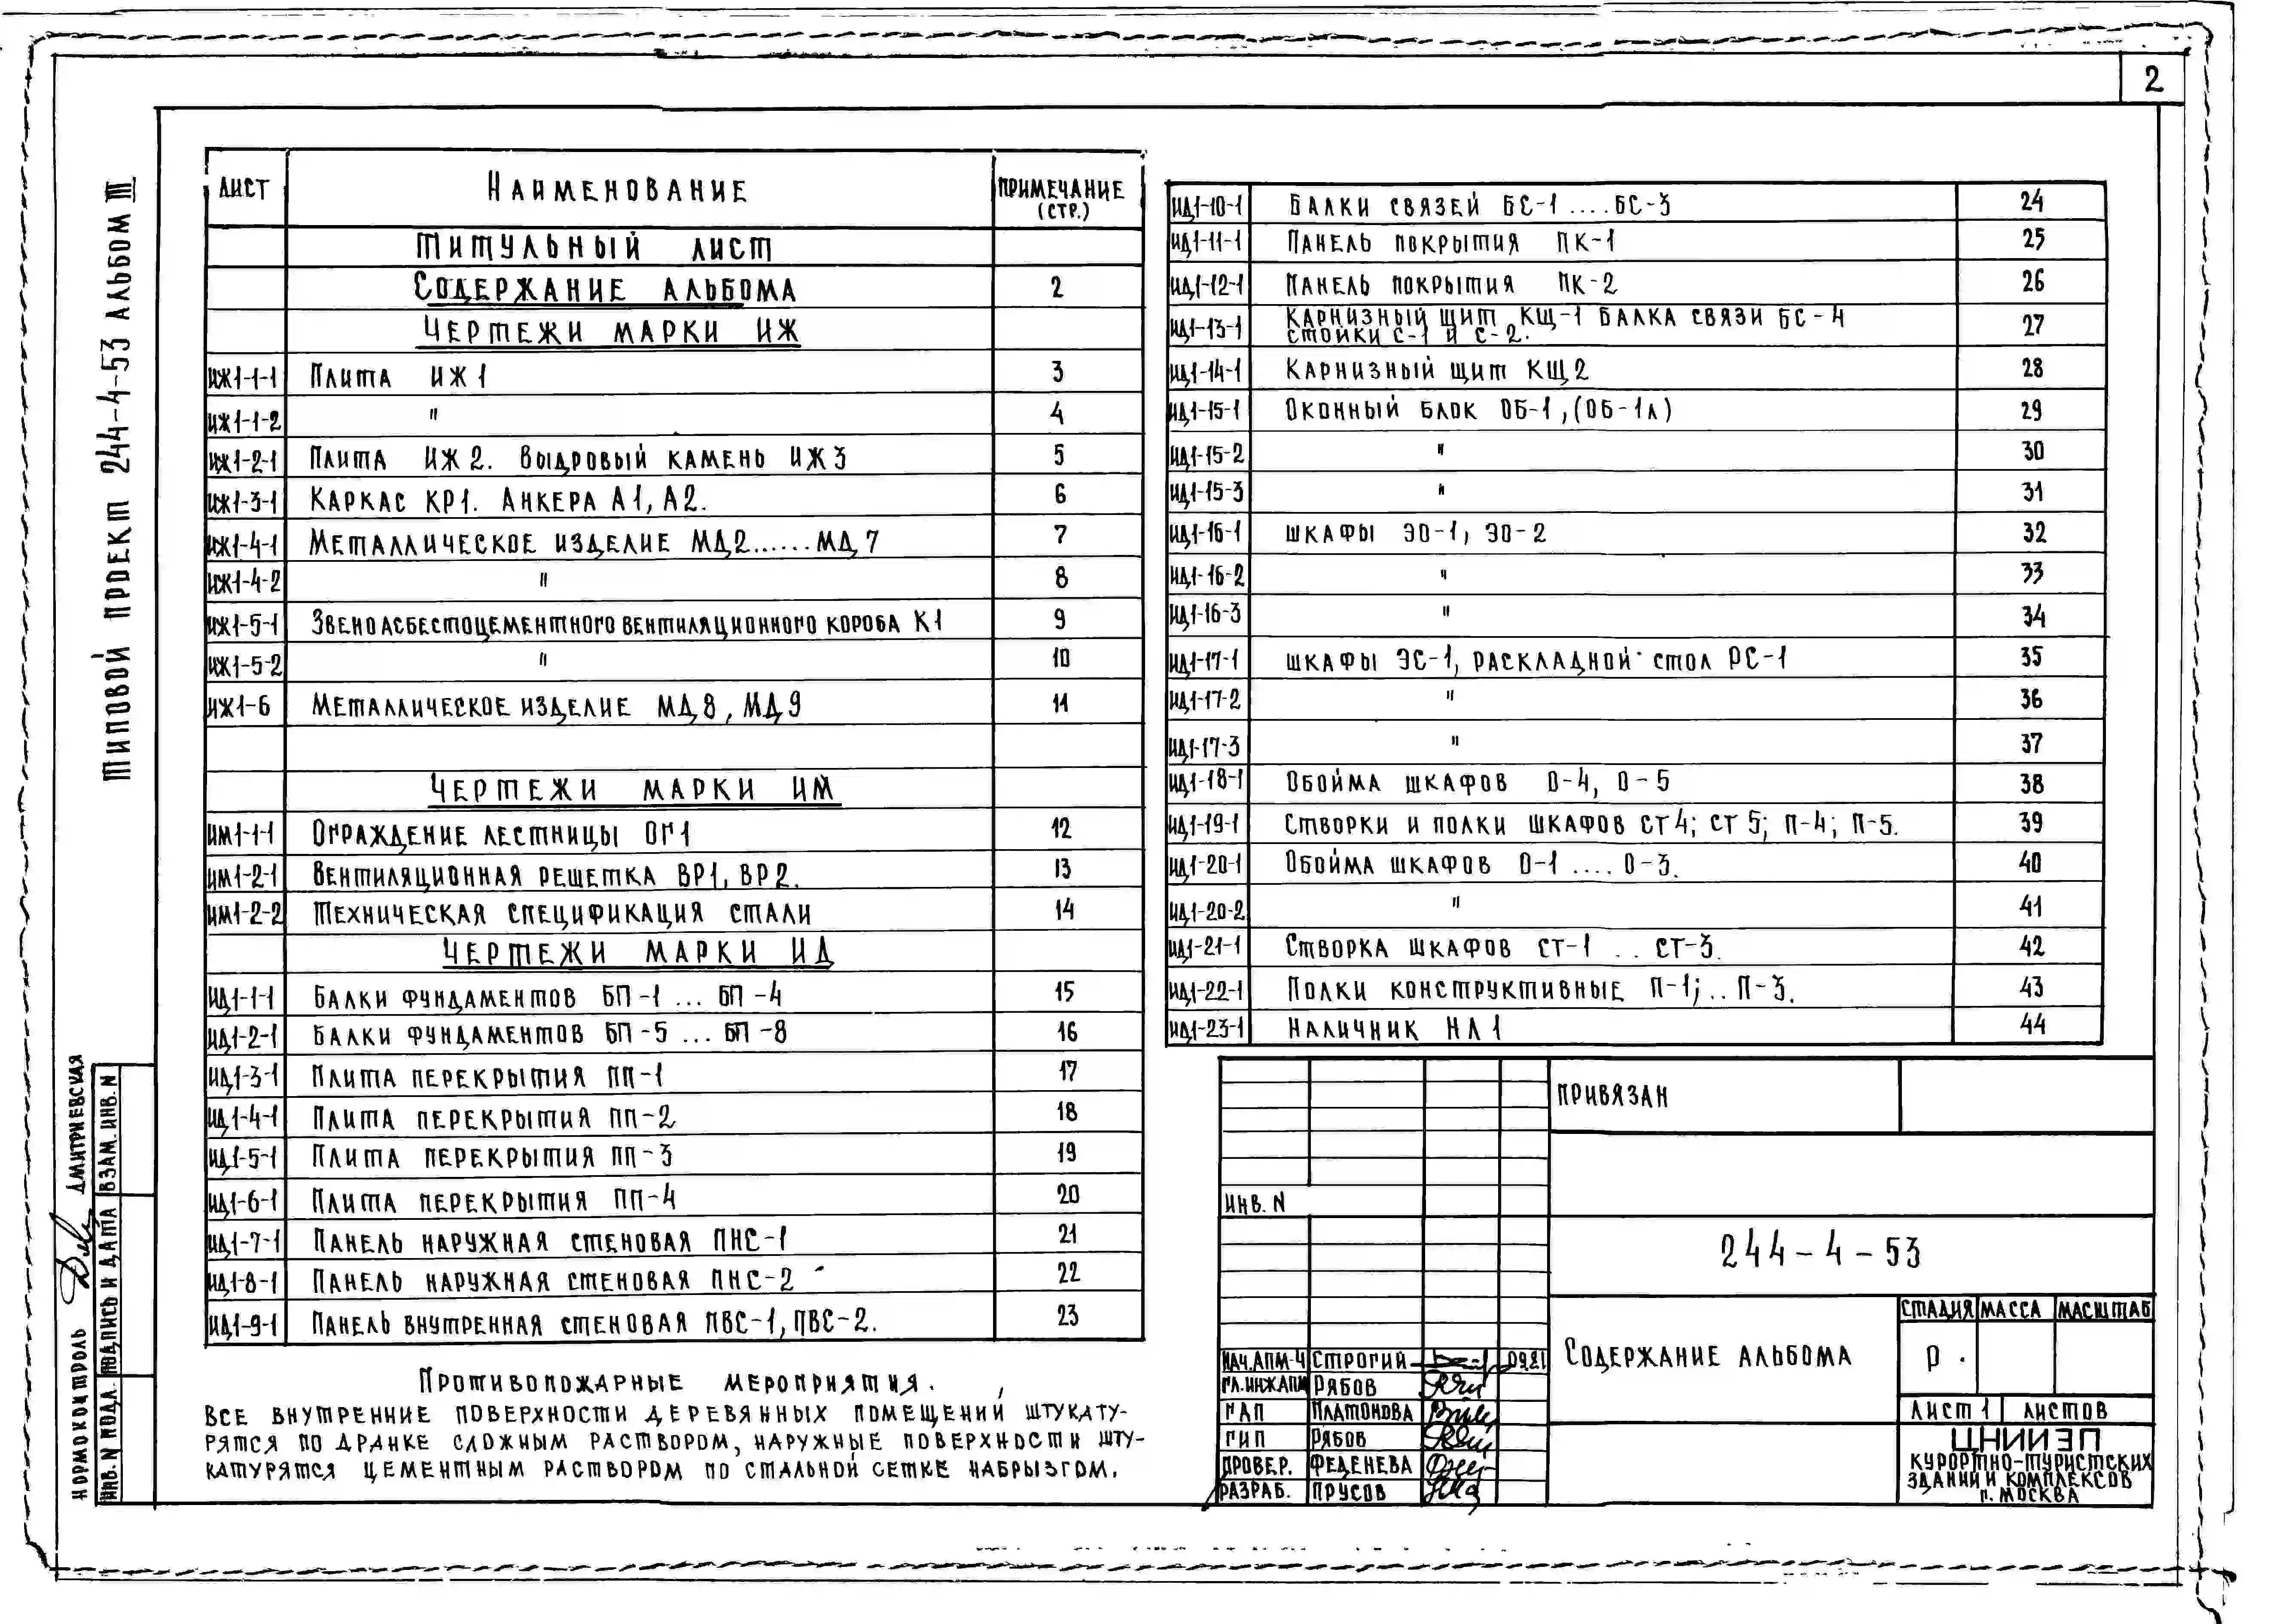 2
ТИПОВОЙ ПРОЕКТ 244-4-53 АЛЬБОМ III
ЛИСТ НАИМЕНОВАНИЕ ПРИМЕЧАНИЕ (СТР.)
ТИТУЛЬНЫЙ ЛИСТ
СОДЕРЖАНИЕ АЛЬБОМА 2
ЧЕРТЕЖИ МАРКИ ИЖ
ИЖ1-1-1 ПЛИТА ИЖ1 3
ИЖ1-1-2 " 4
ИЖ1-2-1 ПЛИТА ИЖ2. ВЫДРОВЫЙ КАМЕНЬ ИЖ3 5
ИЖ1-3-1 КАРКАС КР1. АНКЕРА А1, А2. 6
ИЖ1-4-1 МЕТАЛЛИЧЕСКОЕ ИЗДЕЛИЕ МД2......МД7 7
ИЖ1-4-2 " 8
ИЖ1-5-1 ЗВЕНО АСБЕСТОЦЕМЕНТНОГО ВЕНТИЛЯЦИОННОГО КОРОБА К1 9
ИЖ1-5-2 " 10
ИЖ1-6 МЕТАЛЛИЧЕСКОЕ ИЗДЕЛИЕ МД8, МД9 11
ЧЕРТЕЖИ МАРКИ ИМ
ИМ1-1-1 ОГРАЖДЕНИЕ ЛЕСТНИЦЫ ОГ1 12
ИМ1-2-1 ВЕНТИЛЯЦИОННАЯ РЕШЕТКА ВР1, ВР2. 13
ИМ1-2-2 ТЕХНИЧЕСКАЯ СПЕЦИФИКАЦИЯ СТАЛИ 14
ЧЕРТЕЖИ МАРКИ ИД
ИД1-1-1 БАЛКИ ФУНДАМЕНТОВ БП-1 ... БП-4 15
ИД1-2-1 БАЛКИ ФУНДАМЕНТОВ БП-5 ... БП-8 16
ИД1-3-1 ПЛИТА ПЕРЕКРЫТИЯ ПП-1 17
ИД1-4-1 ПЛИТА ПЕРЕКРЫТИЯ ПП-2 18
ИД1-5-1 ПЛИТА ПЕРЕКРЫТИЯ ПП-3 19
ИД1-6-1 ПЛИТА ПЕРЕКРЫТИЯ ПП-4 20
ИД1-7-1 ПАНЕЛЬ НАРУЖНАЯ СТЕНОВАЯ ПНС-1 21
ИД1-8-1 ПАНЕЛЬ НАРУЖНАЯ СТЕНОВАЯ ПНС-2 22
ИД1-9-1 ПАНЕЛЬ ВНУТРЕННАЯ СТЕНОВАЯ ПВС-1, ПВС-2. 23
ИД1-10-1 БАЛКИ СВЯЗЕЙ БС-1 ....БС-3 24
ИД1-11-1 ПАНЕЛЬ ПОКРЫТИЯ ПК-1 25
ИД1-12-1 ПАНЕЛЬ ПОКРЫТИЯ ПК-2 26
ИД1-13-1 КАРНИЗНЫЙ ЩИТ КЩ-1 БАЛКА СВЯЗИ БС-4 27
СТОЙКИ С-1 И С-2.
ИД1-14-1 КАРНИЗНЫЙ ЩИТ КЩ2 28
ИД1-15-1 ОКОННЫЙ БЛОК ОБ-1, (ОБ-1Л) 29
ИД1-15-2 " 30
ИД1-15-3 " 31
ИД1-16-1 ШКАФЫ ЭО-1, ЭО-2 32
ИД1-16-2 " 33
ИД1-16-3 " 34
ИД1-17-1 ШКАФЫ ЭС-1, РАСКЛАДНОЙ СТОЛ РС-1 35
ИД1-17-2 " 36
ИД1-17-3 " 37
ИД1-18-1 ОБОЙМА ШКАФОВ О-4, О-5 38
ИД1-19-1 СТВОРКИ И ПОЛКИ ШКАФОВ СТ4; СТ5; П-4; П-5. 39
ИД1-20-1 ОБОЙМА ШКАФОВ О-1 .... О-3. 40
ИД1-20-2 " 41
ИД1-21-1 СТВОРКА ШКАФОВ СТ-1 .. СТ-3. 42
ИД1-22-1 ПОЛКИ КОНСТРУКТИВНЫЕ П-1;.. П-3. 43
ИД1-23-1 НАЛИЧНИК НЛ1 44
ПРОТИВОПОЖАРНЫЕ МЕРОПРИЯТИЯ.
ВСЕ ВНУТРЕННИЕ ПОВЕРХНОСТИ ДЕРЕВЯННЫХ ПОМЕЩЕНИЙ ШТУКАТУ-
РЯТСЯ ПО ДРАНКЕ СЛОЖНЫМ РАСТВОРОМ, НАРУЖНЫЕ ПОВЕРХНОСТИ ШТУ-
КАТУРЯТСЯ ЦЕМЕНТНЫМ РАСТВОРОМ ПО СТАЛЬНОЙ СЕТКЕ НАБРЫЗГОМ.
НОРМОКОНТРОЛЬ ДМИТРИЕВСКАЯ
ИНВ. N ПОДЛ. ПОДПИСЬ И ДАТА ВЗАМ. ИНВ. N
ПРИВЯЗАН
ИНВ. N
244-4-53
СОДЕРЖАНИЕ АЛЬБОМА
СТАДИЯ МАССА МАСШТАБ
Р.
ЛИСТ 1 ЛИСТОВ
ЦНИИЭП
КУРОРТНО-ТУРИСТСКИХ
ЗДАНИЙ И КОМПЛЕКСОВ
Г. МОСКВА
НАЧ.АПМ-4 СТРОГИЙ
ГЛ.ИНЖ.АПМ РЯБОВ
ГАП ПЛАТОНОВА
ГИП РЯБОВ
ПРОВЕР. ФЕДЕНЕВА
РАЗРАБ. ПРУСОВ